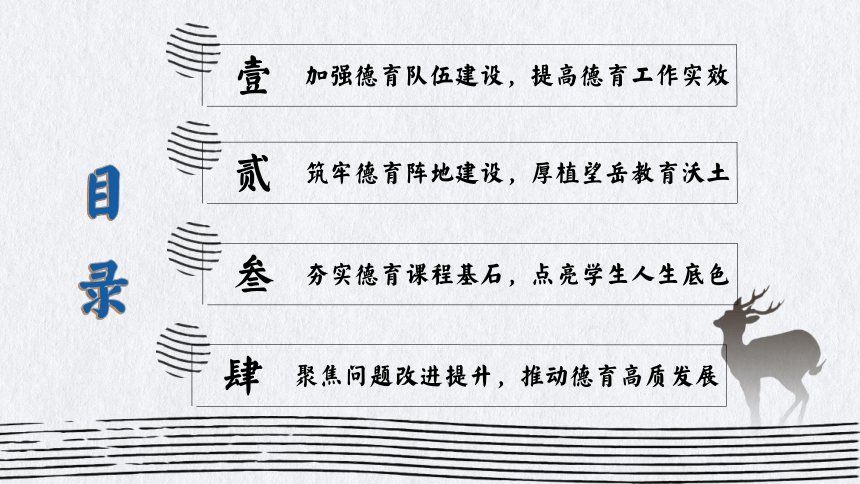 目录
壹 加强德育队伍建设，提高德育工作实效
贰 筑牢德育阵地建设，厚植望岳教育沃土
叁 夯实德育课程基石，点亮学生人生底色
肆 聚焦问题改进提升，推动德育高质发展